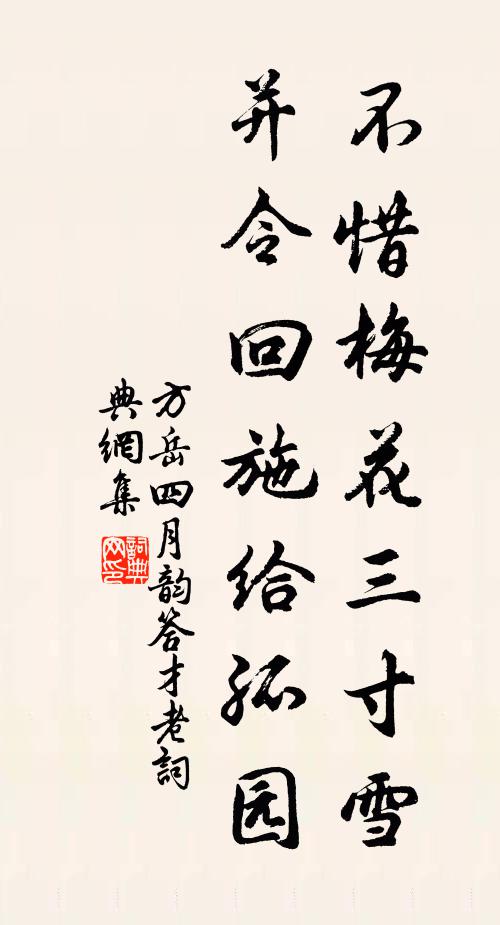 不惜梅花三寸雪
并令回施给孤园
方岳四月韵答才老詞
典網集
詞典网印